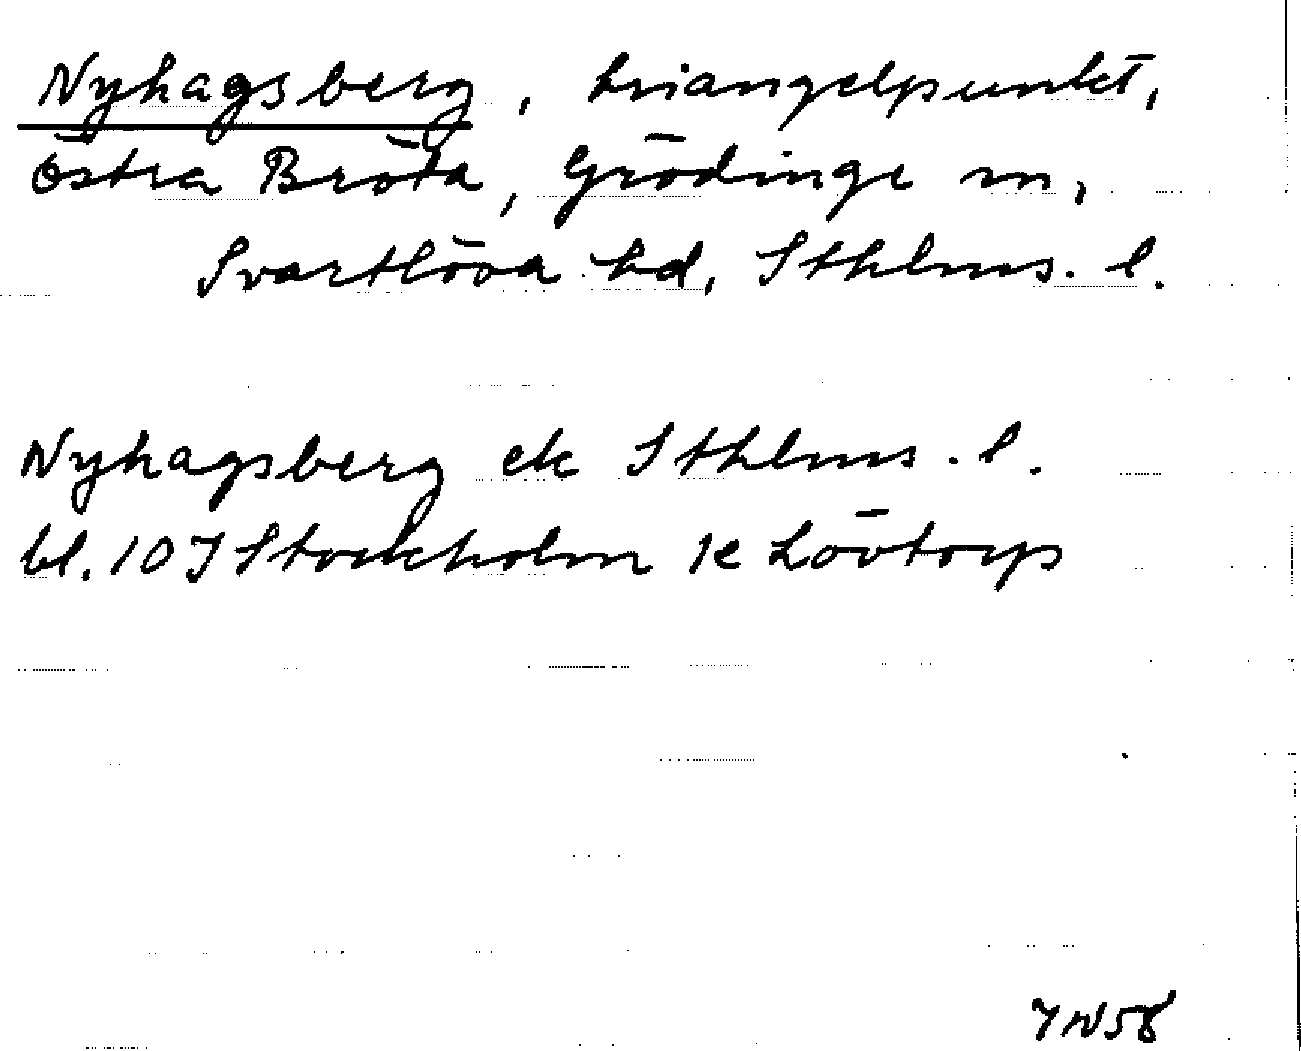 Nyhagsberg, triangelpunkt,
Östra Bröta, Grödinge sn,
Svartlösa hd, Sthlms. l.
Nyhagsberg ek Sthlms. l.
bl. 10 I Stockholm